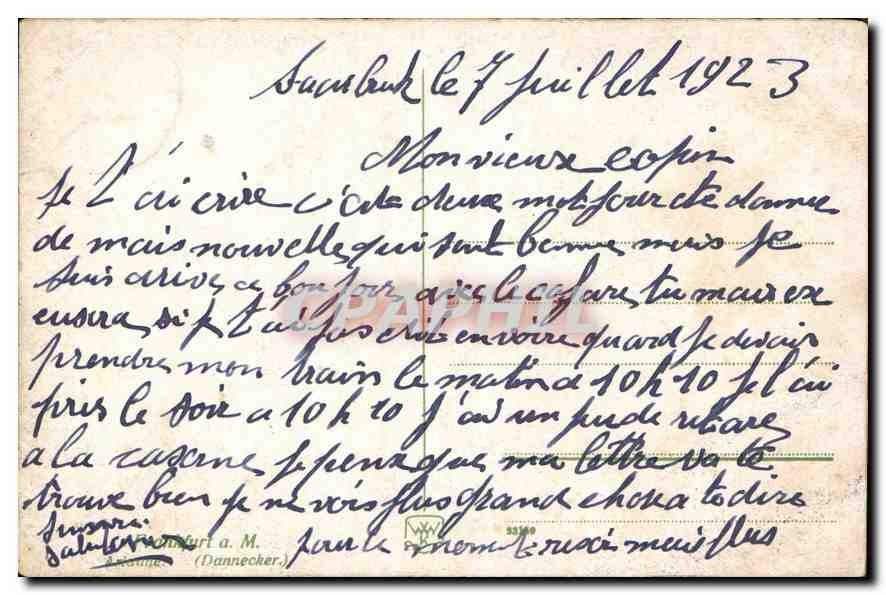 Saarbruk le 7 Juillet 1923
Mon vieux copin
Je t'ai crire c'est deux mot pour cte donner
de mais nouvelle qui sont bonne mais je
suis arive a bon for avec le cafare tu
cusera si je t'ai pas crit en voire quand je devais
prendre mon train le matin a 10 h 10 je l'ai
pris le soir a 10 h 10 j'ai un peu de retare
a la caserne je pense que ma lettre va te
trouve bien je ne vois plus grand chose a te dire
pour le moment mais plus
Frankfurt a. M.
Ariadne. (Dannecker.)
CPAPHIL